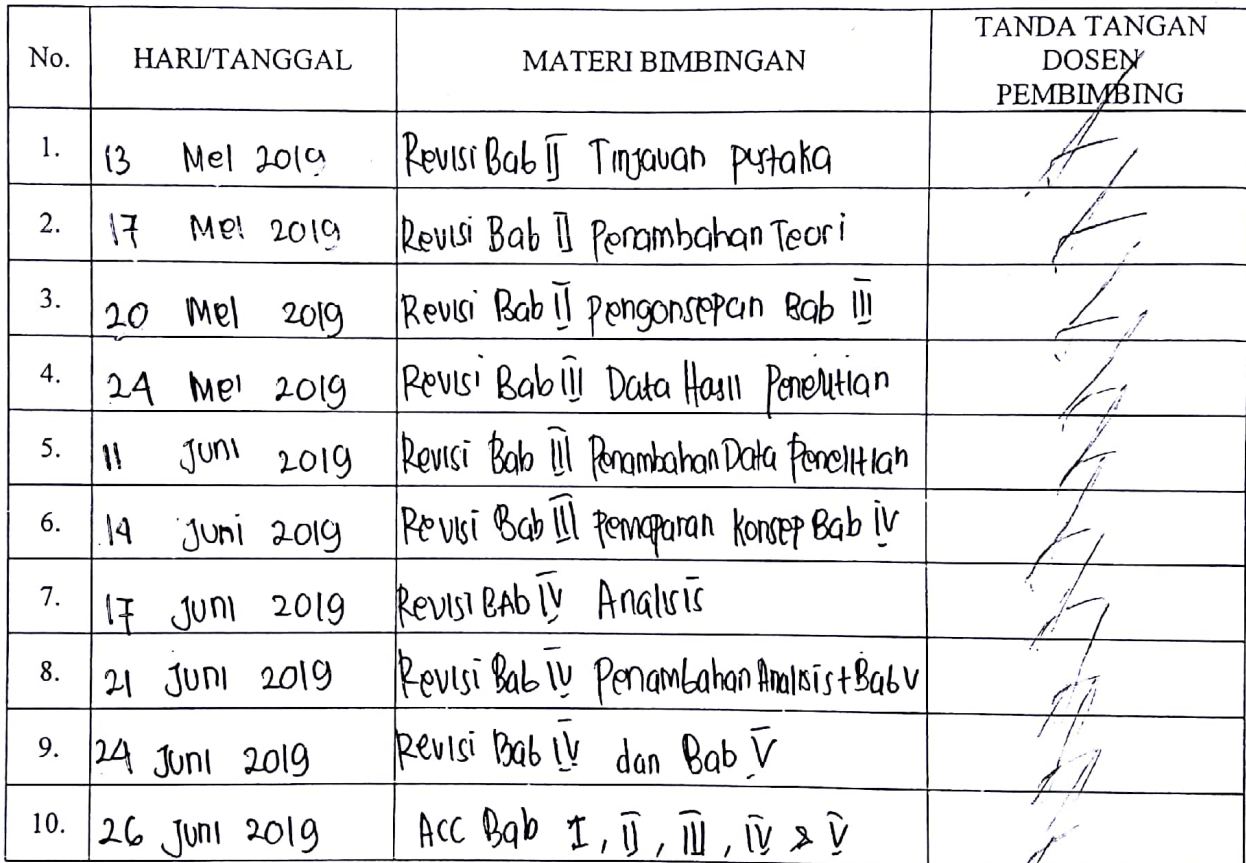 No. HARI/TANGGAL MATERI BIMBINGAN TANDA TANGAN
DOSEN
PEMBIMBING
1. 13 Mei 2019 Revisi Bab II Tinjauan pustaka
2. 17 Mei 2019 Revisi Bab II Penambahan Teori
3. 20 Mei 2019 Revisi Bab II pengonsepan Bab III
4. 24 Mei 2019 Revisi Bab III Data Hasil Penelitian
5. 11 Juni 2019 Revisi Bab III Penambahan Data Penelitian
6. 14 Juni 2019 Revisi Bab III Pemaparan Konsep Bab IV
7. 17 Juni 2019 Revisi BAb IV Analisis
8. 21 Juni 2019 Revisi Bab IV Penambahan Analisis + Bab V
9. 24 Juni 2019 Revisi Bab IV dan Bab V
10. 26 Juni 2019 ACC Bab I, II, III, IV & V